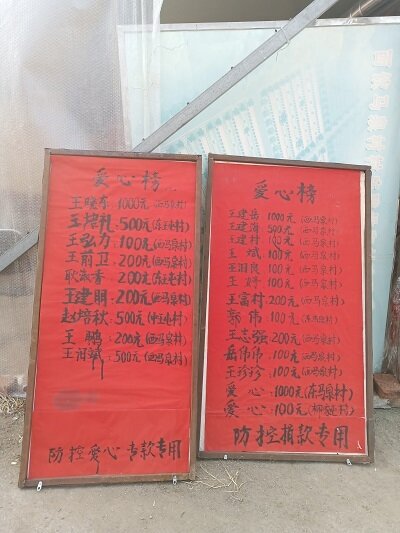 爱心榜
王晓东 1000元(西马泉村)
王培礼 500元(东王屯村)
王弘力 100元(西马泉村)
王前卫 200元(西马泉村)
耿派香 200元
王建明 200元(西马泉村)
赵培秋 500元(中王屯村)
王鹏 200元(西马泉村)
王泪斌 500元(西马泉村)
防控爱心专款专用
爱心榜
王建岳 1000元(西马泉村)
王建 500元(西马泉村)
王建村 100元(西马泉村)
王斌 100元(西马泉村)
王泪良 100元(西马泉村)
王婷 100元(西马泉村)
王富村 200元(西马泉村)
郭伟 100元
王志强 200元(西马泉村)
岳伟伟 100元(西马泉村)
王珍珍 100元(西马泉村)
爱心 1000元(东马泉村)
爱心 100元
防控捐款专用